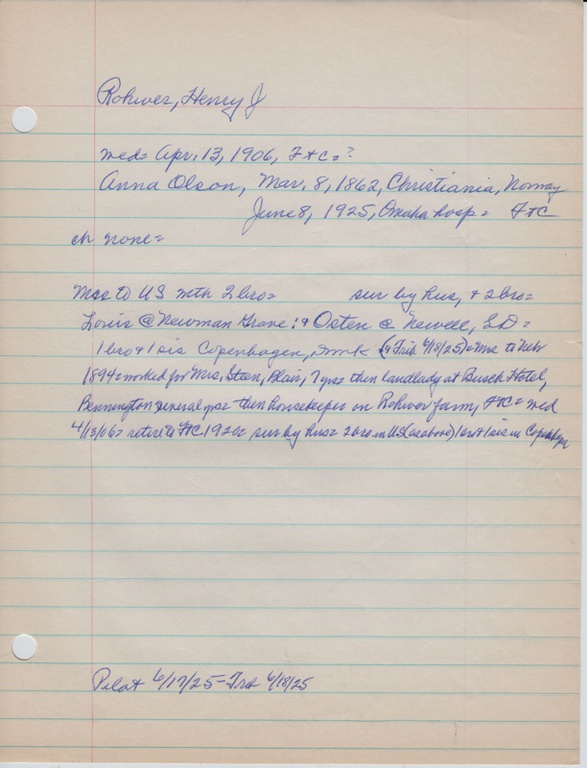 Rohwer, Henry J
med= Apr. 13, 1906, FtC=?
Anna Olson, Mar. 8, 1862, Christiania, Norway
June 8, 1925, Omaha hosp= FtC
ch none=
Mrs to US with 2 bro= sur by hus, + 2 bro=
Louis @ Newman Grove: + Osten @ Newell, SD=
1 bro + 1 sis Copenhagen, Dmk (+ Trib 6/18/25) = Mrs to Neb
1894= worked for Mrs. Sten, Blair, 7 yrs= then landlady at Busch Hotel,
Bennington several yrs= then housekeeper on Rohwer farm, FtC= med
4/13/06= retire to FtC 1920= sur by hus= 2 bro in US (as above) 1 bro + 1 sis in Copenhagen
Pilot 6/17/25 - Trib 6/18/25